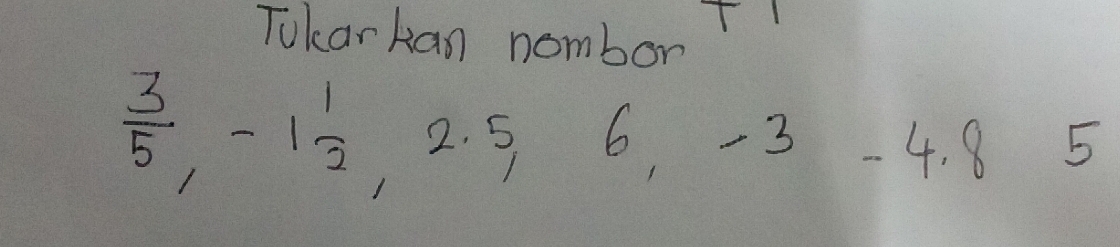 Tukarkan nombor
3/5, - 1 1/2, 2.5, 6, -3 -4.8 5